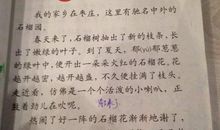 我的家乡在枣庄，这里有驰名中外的
石榴园。
春天来了，石榴树抽出了新的枝条，长
出了嫩绿的叶子。到了夏天，郁(yù)郁葱葱
的绿叶中，便开出一朵朵火红的石榴花。花
越开越密，越开越盛，不久便挂满了枝头。
走近看，仿佛是一个个活泼的小喇叭，正
鼓着劲儿在吹呢。
热闹了好一阵的石榴花渐渐地谢了，